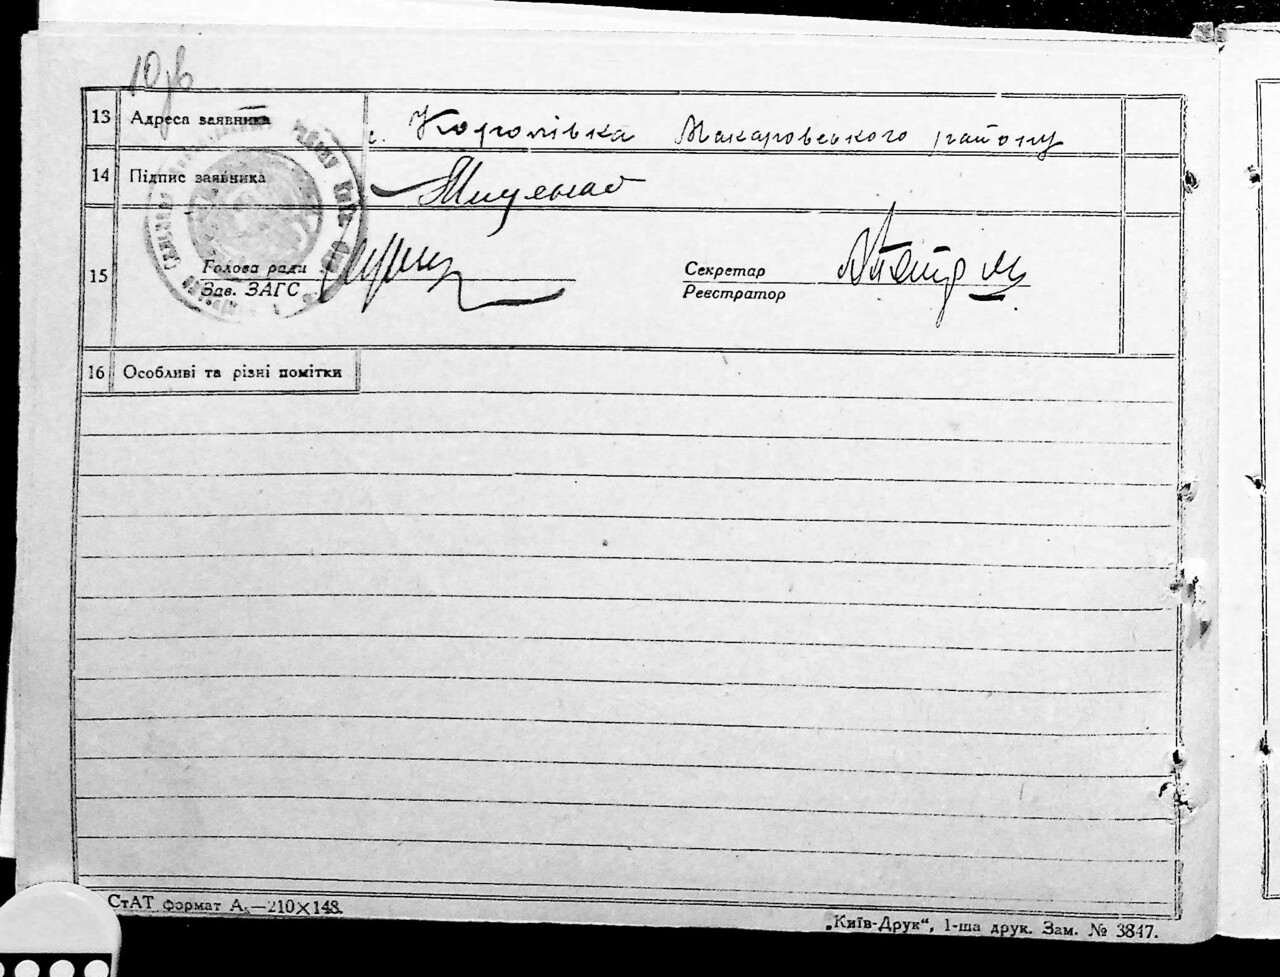 13 Адреса заявника с. Королівка Макаровського району
14 Підпис заявника
15 Голова ради Секретар
Зав. ЗАГС Реєстратор
16 Особливі та різні помітки
СтАТ формат А₅—210×148.
„Київ-Друк“, 1-ша друк. Зам. № 3847.